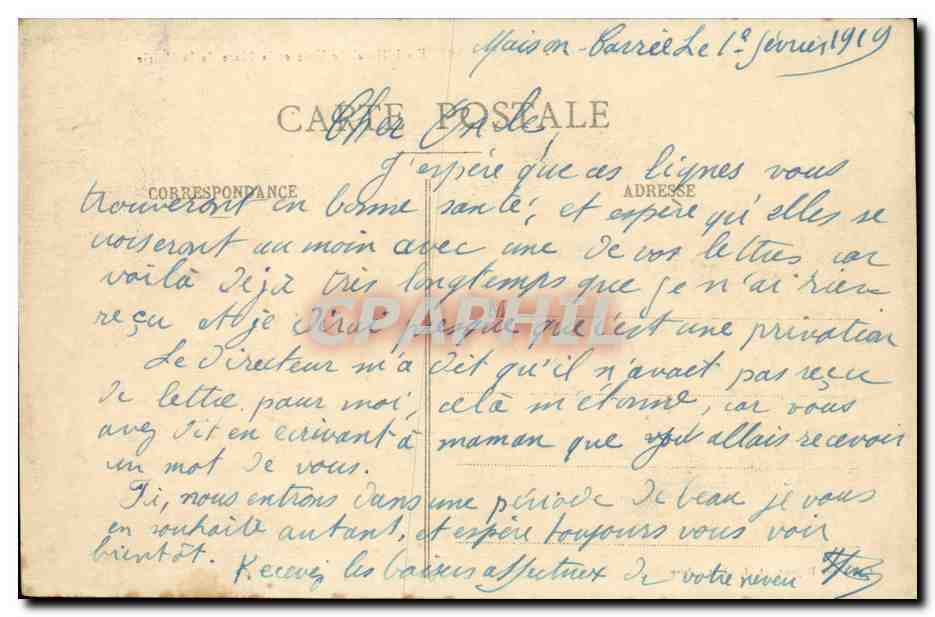 Maison-Carrée Le 1e février 1919
CARTE POSTALE
Cher Oncle,
J'espère que ces lignes vous
CORRESPONDANCE ADRESSE
trouveront en bonne santé, et espère qu'elles se
croiseront au moin avec une de vos lettres car
voilà déjà très longtemps que je n'ai rien
reçu et je dirai presque que c'est une privation
CPAPHIL
Le directeur m'a dit qu'il n'avait pas reçu
de lettre pour moi, celà m'étonne, car vous
avez dit en écrivant à maman que allais recevoir
un mot de vous.
Ici, nous entrons dans une période de beau je vous
en souhaite autant, et espère toujours vous voir
bientôt. Recevez les baisers affectueux de votre neveu